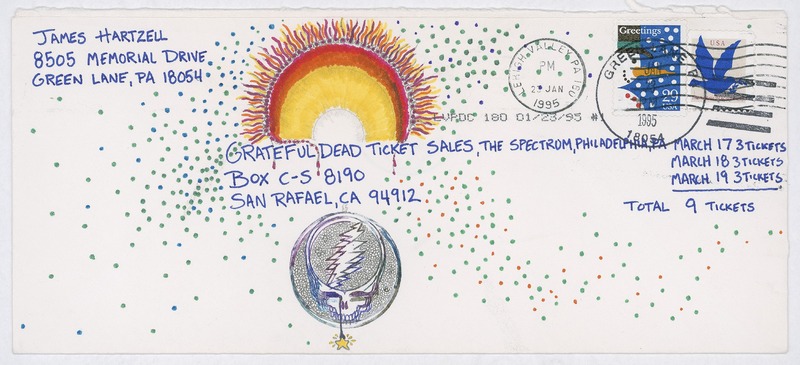 JAMES HARTZELL
8505 MEMORIAL DRIVE
GREEN LANE, PA 18054
LEHIGH VALLEY, PA 180
PM
23 JAN
1995
Greetings
USA
29
USA
GREEN LANE
1995
18054
LVPDC 180 01/23/95 #1
GRATEFUL DEAD TICKET SALES, THE SPECTRUM, PHILADELPHIA, PA
BOX C-S 8190
SAN RAFAEL, CA 94912
MARCH 17 3 TICKETS
MARCH 18 3 TICKETS
MARCH 19 3 TICKETS
TOTAL 9 TICKETS